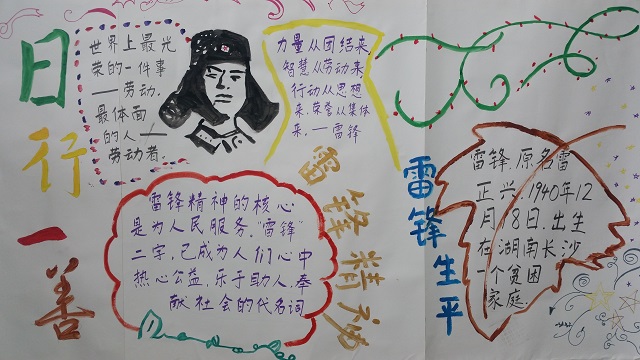 日行一善
世界上最光
荣的一件事
——劳动.
最体面
的人——
劳动者.
力量从团结来
智慧从劳动来
行动从思想
来,荣誉从集体
来.——雷锋
雷锋精神
雷锋精神的核心
是为人民服务,“雷锋”
二字,已成为人们心中
热心公益,乐于助人,奉
献社会的代名词
雷锋生平
雷锋,原名雷
正兴,1940年12
月18日,出生
在湖南长沙
一个贫困
家庭.